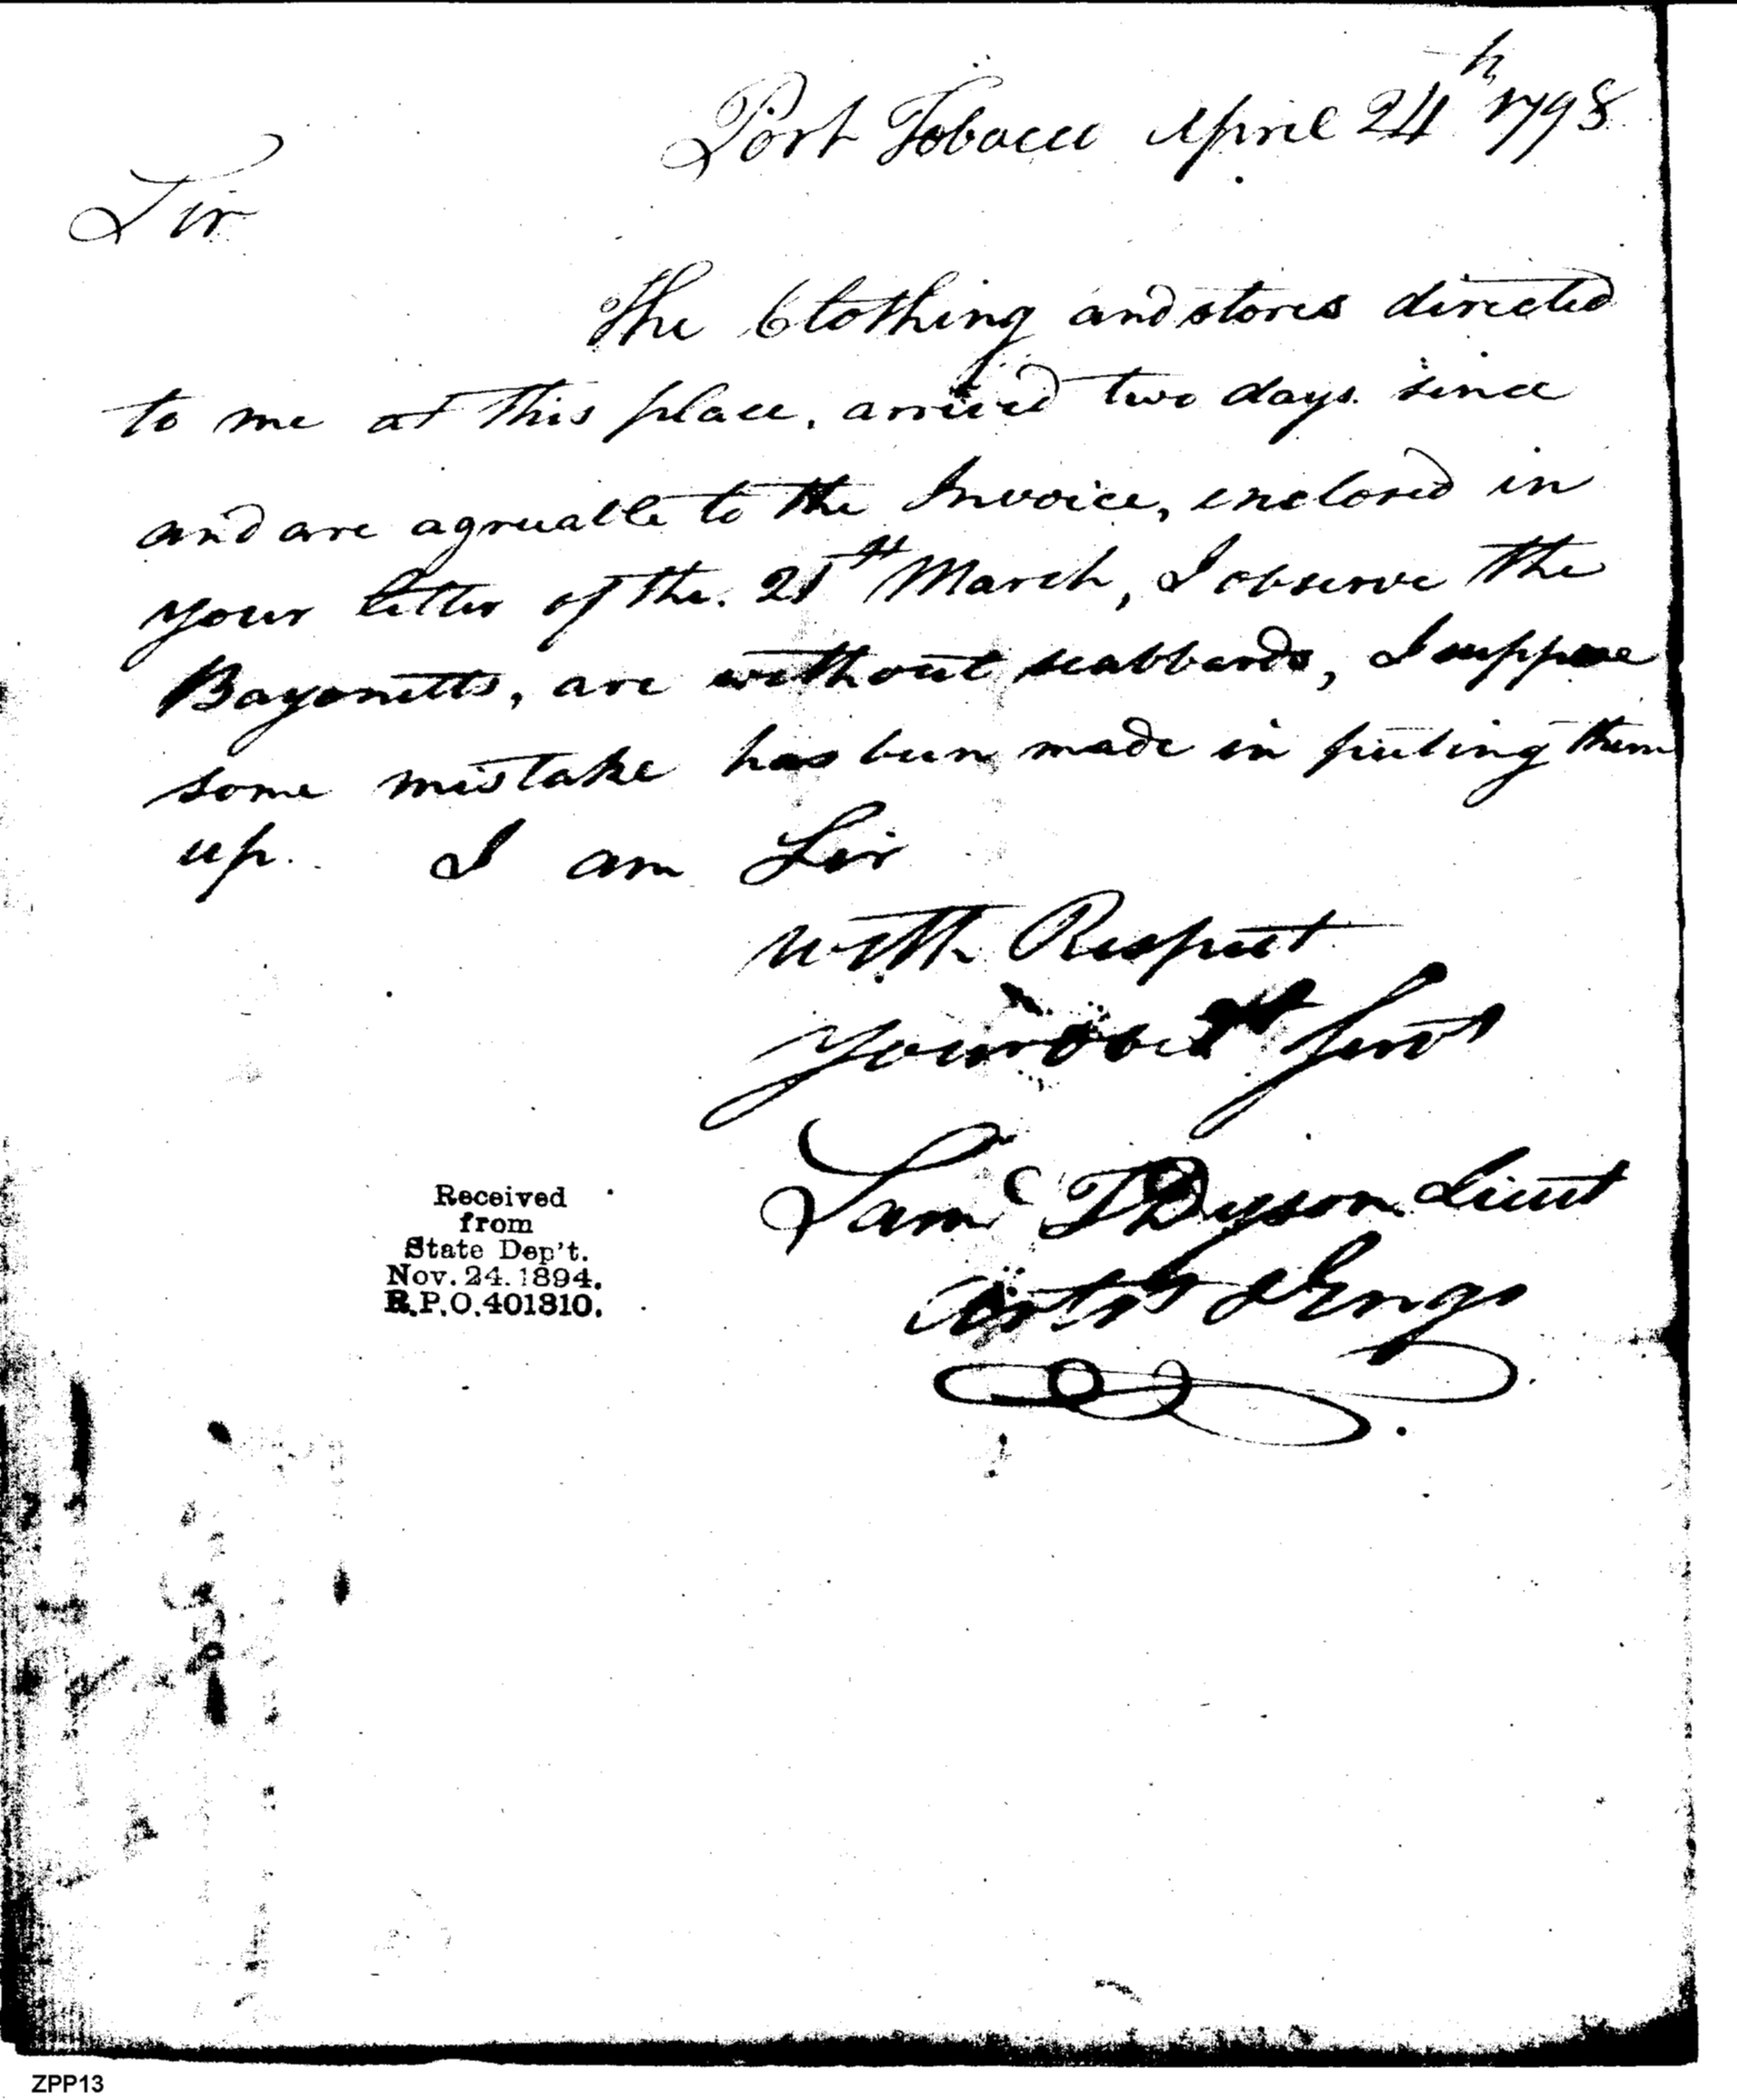 Port Tobacco April 24th 1798
Sir
The Clothing and stores directed
to me at this place, arrived two days since
and are agreuable to the Invoice, enclosed in
your letter of the 21st March, I observe the
Bayonetts, are without scabbards, I suppose
some mistake has been made in puting them
up. I am Sir
with Respect
your obedt Servt
Saml T Dyson Lieut
Artts & Engs
Received
from
State Dep't.
Nov. 24. 1894.
R.P.O. 401310.
ZPP13